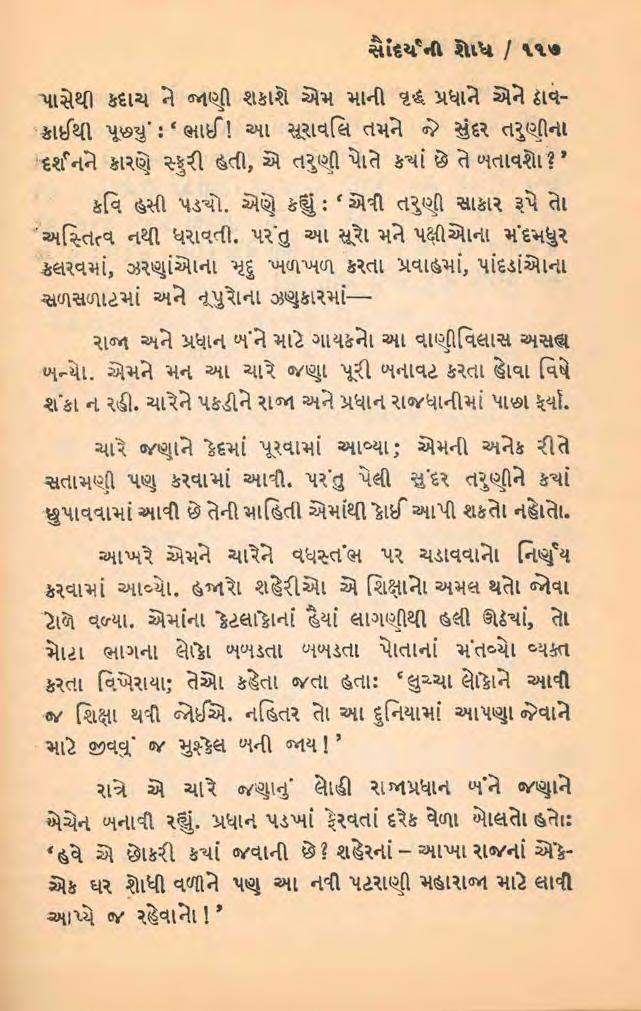 સૌંદર્યની શોધ / ૧૧૭
પાસેથી કદાચ ને જાણી શકાશે એમ માની વૃદ્ધ પ્રધાને એને ઠાવ-
કાઈથી પૂછ્યું : ‘ ભાઈ! આ સૂરાવલિ તમને જે સુંદર તરુણીના
દર્શનને કારણે સ્ફુરી હતી, એ તરુણી પોતે ક્યાં છે તે બતાવશો ? ’
કવિ હસી પડ્યો. એણે કહ્યું : ‘ એવી તરુણી સાકાર રૂપે તો
અસ્તિત્વ નથી ધરાવતી. પરંતુ આ સૂરો મને પક્ષીઓના મંદમધુર
કલરવમાં, ઝરણાંઓના મૃદુ ખળખળ કરતા પ્રવાહમાં, પાંદડાંઓના
સળસળાટમાં અને નૂપુરોના ઝણકારમાં—
રાજા અને પ્રધાન બંને માટે ગાયકનો આ વાણીવિલાસ અસહ્ય
બન્યો. એમને મન આ ચારે જણા પૂરી બનાવટ કરતા હોવા વિષે
શંકા ન રહી. ચારેને પકડીને રાજા અને પ્રધાન રાજધાનીમાં પાછા ફર્યા.
ચારે જણાને કેદમાં પૂરવામાં આવ્યા; એમની અનેક રીતે
સતામણી પણ કરવામાં આવી. પરંતુ પેલી સુંદર તરુણીને ક્યાં
છુપાવવામાં આવી છે તેની માહિતી એમાંથી કોઈ આપી શકતો નહોતો.
આખરે એમને ચારેને વધસ્તંભ પર ચડાવવાનો નિર્ણય
કરવામાં આવ્યો. હજારો શહેરીઓ એ શિક્ષાનો અમલ થતો જોવા
ટોળે વળ્યા. એમાંના કેટલાકોનાં હૈયાં લાગણીથી હલી ઊઠ્યાં, તો
મોટા ભાગના લોકો બબડતા બબડતા પોતાનાં મંતવ્યો વ્યક્ત
કરતા વિખેરાયા; તેઓ કહેતા જતા હતા: ‘ લુચ્ચા લોકોને આવી
જ શિક્ષા થવી જોઈએ. નહિતર તો આ દુનિયામાં આપણા જેવાને
માટે જીવવું જ મુશ્કેલ બની જાય ! ’
રાત્રે એ ચારે જણાનું લોહી રાજાપ્રધાન બંને જણાને
બેચેન બનાવી રહ્યું. પ્રધાન પડખાં ફેરવતાં દરેક વેળા બોલતો હતો:
‘ હવે એ છોકરી ક્યાં જવાની છે ? શહેરનાં – આખા રાજનાં એકે-
એક ઘર શોધી વળીને પણ આ નવી પટરાણી મહારાજા માટે લાવી
આપ્યે જ રહેવાનો ! ’